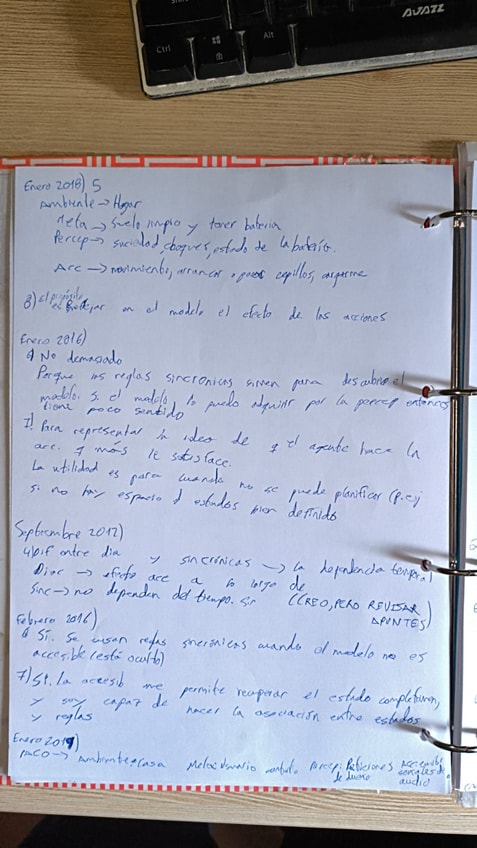 AJAZZ
Ctrl
Alt
Enero 2018) 5
Ambiente → Hogar
Meta → suelo limpio y tener bateria
Percep → suciedad, choques, estado de la batería.
Acc → movimiento, arrancar o parar cepillos, cargarme
8) El propósito es reflejar en el modelo el efecto de las acciones
Enero 2016)
No demasiado
Porque las reglas sincronicas sirven para descubrir el
modelo. Si el modelo lo puedo adquirir por la percep entonces
tiene poco sentido
7) Para representar la idea de q el agente haga la
acc. q más le satisface.
La utilidad es para cuando no se puede planificar (p.ej
si no hay espacio d estados bien definido
Septiembre 2017)
4) Dif entre dia y sincrónicas → la dependencia temporal
Diac → efecto acc a lo largo de
Sinc → no dependen del tiempo. (CREO, PERO REVISAR
APUNTES)
Febrero 2016)
Sí. Se usan reglas sincrónicas cuando el modelo no es
accesible (está oculto)
7) Sí. La accesib me permite recuperar el estado completamen,
y soy capaz de hacer la asociación entre estados
y reglas
Enero 2019)
PACO → Ambiente = casa Meta = usuario contento Percep: Peticiones Acc
de usuario señales de
audio